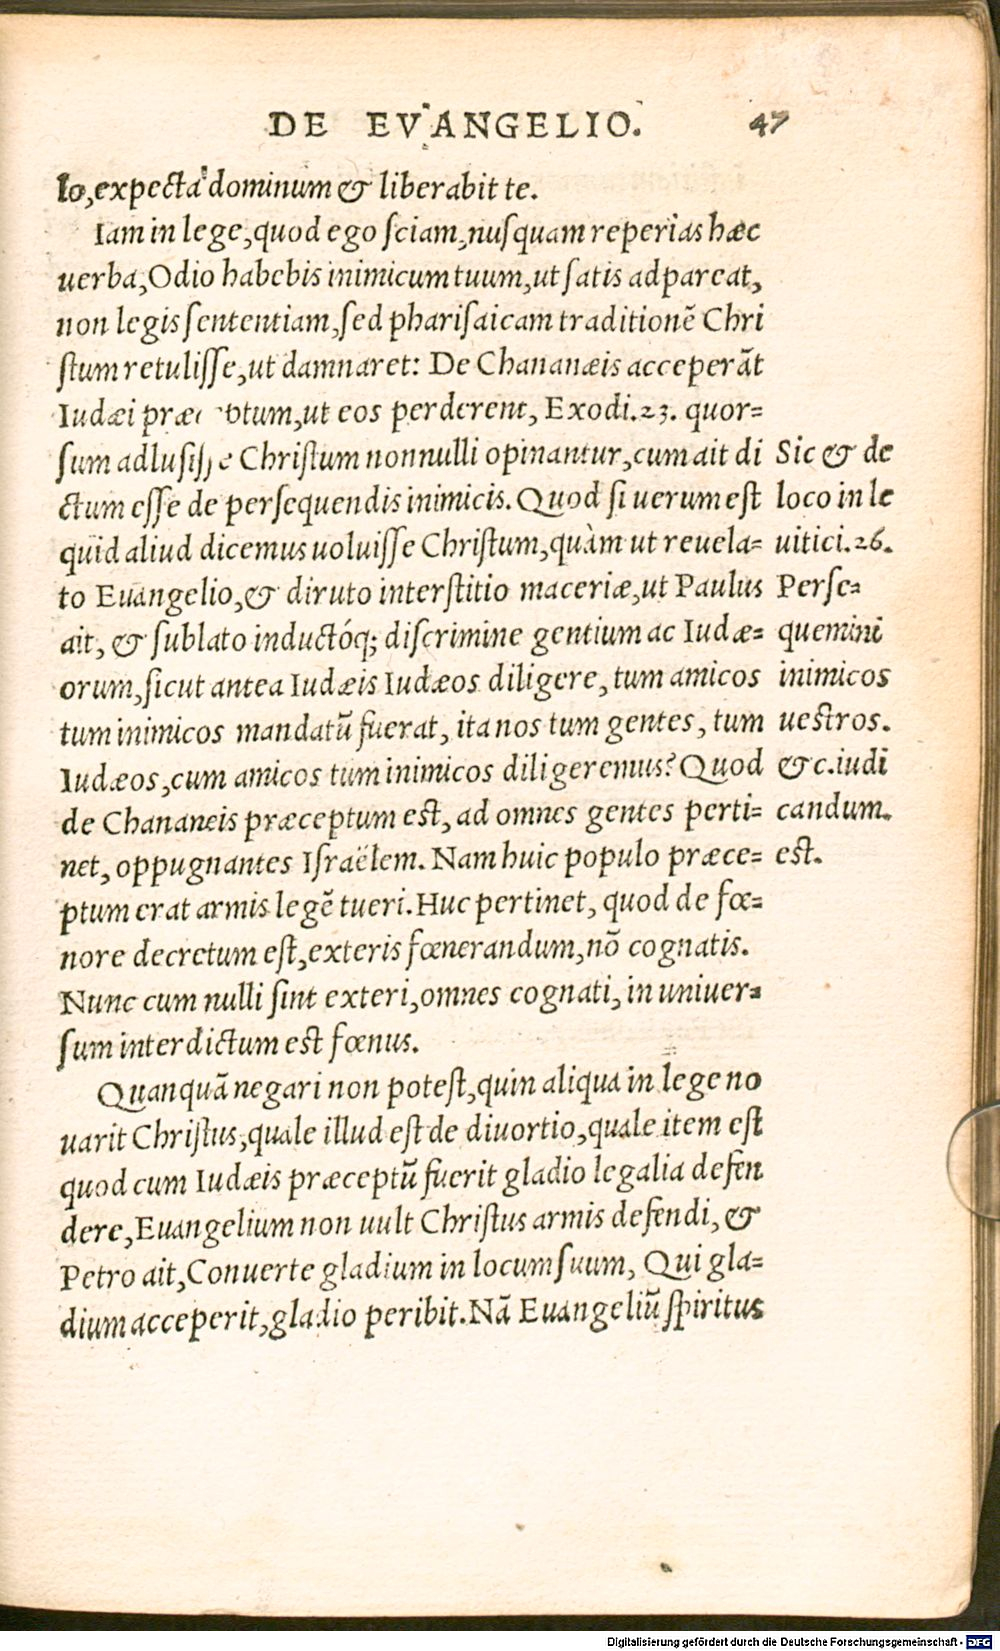 DE EVANGELIO. 47
lo, expecta dominum & liberabit te.
Iam in lege, quod ego sciam, nusquam reperias hæc
uerba, Odio habebis inimicum tuum, ut satis adpareat,
non legis sententiam, sed pharisaicam traditionẽ Chri
stum retulisse, ut damnaret: De Chananæis acceperãt
Iudæi præ ptum, ut eos perderent, Exodi.23. quor=
sum adlusisse Christum nonnulli opinantur, cum ait di
ctum esse de persequendis inimicis. Quod si uerum est
quid aliud dicemus uoluisse Christum, quàm ut reuela=
to Euangelio, & diruto interstitio maceriæ, ut Paulus
ait, & sublato inductóq; discrimine gentium ac Iudæ=
orum, sicut antea Iudæis Iudæos diligere, tum amicos
tum inimicos mandatũ fuerat, ita nos tum gentes, tum
Iudæos, cum amicos tum inimicos diligeremus? Quod
de Chananeis præceptum est, ad omnes gentes perti=
net, oppugnantes Israëlem. Nam huic populo præce=
ptum erat armis legẽ tueri. Huc pertinet, quod de fœ=
nore decretum est, exteris fœnerandum, nõ cognatis.
Nunc cum nulli sint exteri, omnes cognati, in uniuer=
sum interdictum est fœnus.
Quanquã negari non potest, quin aliqua in lege no
uarit Christus, quale illud est de diuortio, quale item est
quod cum Iudæis præceptũ fuerit gladio legalia defen
dere, Euangelium non uult Christus armis defendi, &
Petro ait, Conuerte gladium in locum suum, Qui gla=
dium acceperit, gladio peribit. Nã Euangeliũ spiritus
Sic & de
loco in le
uitici.26.
Perse=
quemini
inimicos
uestros.
&c. iudi
candum.
est.
Digitalisierung gefördert durch die Deutsche Forschungsgemeinschaft - DFG